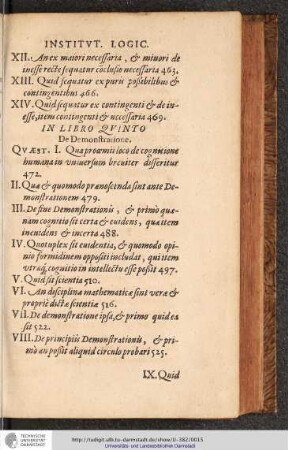 INSTITVT. LOGIC.
XII. An ex maiori necessaria, & minori de
inesse recte sequatur cõclusio necessaria 463.
XIII. Quid sequatur ex puris possibilibus &
contingentibus 466.
XIV. Quid sequatur ex contingenti & de in-
esse, item contingenti & necessaria 469.
IN LIBRO QVINTO
De Demonstratione,
QVÆST. I. Qua proœmii loco de cognitione
humana in vniuersum breuiter disseritur
472.
II. Quæ & quomodo prænoscenda sint ante De-
monstrationem 479.
III. De fine Demonstrationis, & primò quæ-
nam cognitio sit certa & euidens, quæ item
ineuidens & incerta 488.
IV. Quotuplex sit euidentia, & quomodo opi-
nio formidinem oppositi includat, qui item
vtraq; cognitio in intellectu esse possit 497.
V. Quid sit scientia 510.
VI. An disciplinæ mathematicæ sint veræ &
propriè dictæ scientiæ 516.
VII. De demonstratione ipsa, & primo quid ea
sit 522.
VIII. De principiis Demonstrationis, & pri-
mò an possit aliquid circulo probari 525.
IX. Quid
TECHNISCHE
UNIVERSITÄT
DARMSTADT
http://tudigit.ulb.tu-darmstadt.de/show/U-382/0015
Universitäts- und Landesbibliothek Darmstadt